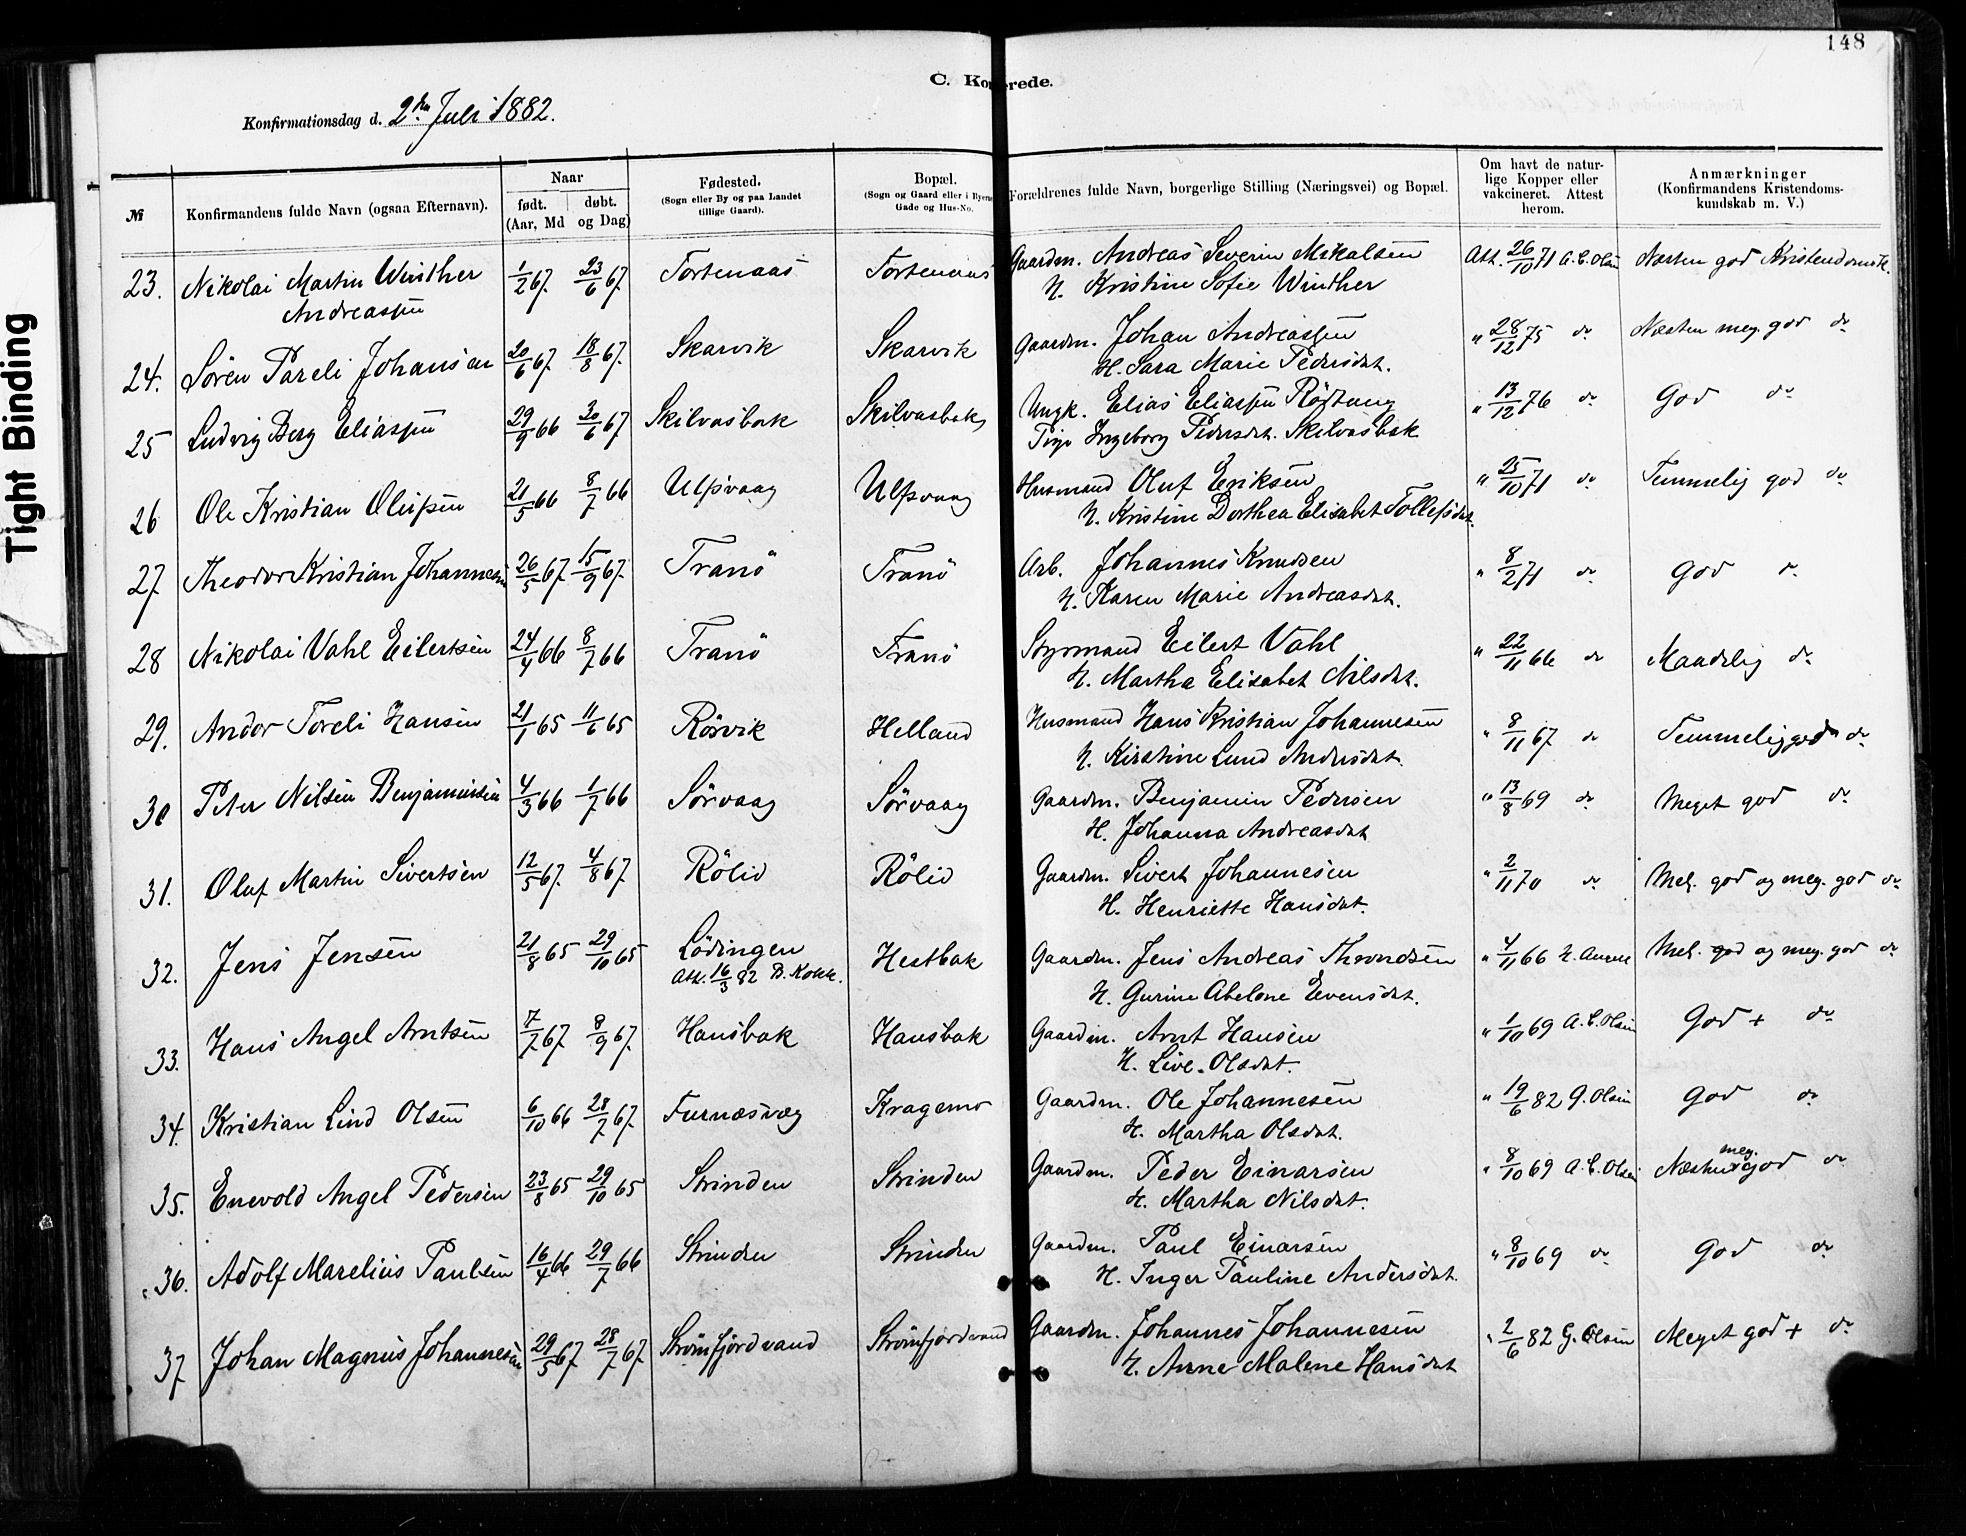 148
C. Konfirmerede.
Konfirmationsdag d. 2den Juli 1882.
Tight Binding
№ | Konfirmandens fulde Navn (ogsaa Efternavn). | Naar født. døbt. (Aar, Md og Dag) | Fødested. (Sogn eller By og paa Landet tillige Gaard). | Bopæl. (Sogn og Gaard eller i Byerne Gade og Hus-No. | Forældrenes fulde Navn, borgerlige Stilling (Næringsvei) og Bopæl. | Om havt de naturlige Kopper eller vakcineret. Attest herom. | Anmærkninger (Konfirmandens Kristendomskundskab m. V.)
23. Nikolai Martin Winther Andreassen | 1/2 67. | 23/6 67. | Tortenaas | Tortenaas | Gaardm. Andreas Severin Mikalsen H. Kristine Sofie Winther | Att. 26/10 71 A. C. Olsen | Næsten god Kristendomsk.
24. Sören Pareli Johansen | 20/6 67. | 18/8 67. | Skarvik | Skarvik | Gaardm. Johan Andreassen H. Sara Marie Pedersdat. | " 28/12 75 do | Næsten meg. god do
25 Ludvig Berg Eliassen | 29/9 66 | 30/6 67 | Skilvasbak | Skilvasbak | Ungk. Elias Eliassen Rödtang Pige Ingeborg Pedersdat. Skilvasbak | " 13/12 76 do | God do
26 Ole Kristian Olufsen | 21/5 66 | 8/7 66 | Ulfsvaag | Ulfsvaag | Husmand Oluf Eriksen H. Kristine Dorthea Elisabet Tollefsdat. | " 25/10 71 do | Temmelig god do
27 Theodor Kristian Johannesen | 26/5 67. | 15/9 67. | Tranö | Tranö | Arb. Johannes Knudsen H. Karen Marie Andreasdat. | " 8/2 71 do | God do
28 Nikolai Vahl Eilertsen | 24/4 66 | 8/7 66 | Tranö | Tranö | Styrmand Eilert Vahl H. Martha Elisabet Nilsdat. | " 22/11 66 do | Maadelig do
29. Andor Toreli Hansen | 21/1 65 | 11/6 65 | Rörvik | Helland | Husmand Hans Kristian Johannesen H. Kirstine Lund Andersdat. | " 8/11 67. do | Temmelig god do
30 Peter Nilsen Benjaminsen | 4/3 66 | 1/7 66 | Sörvaag | Sörvaag | Gaardm. Benjamin Pedersen H. Johanna Andreasdat | " 13/8 69 do | Meget god do
31. Oluf Martin Sivertsen | 12/5 67. | 4/8 67. | Rölid | Rölid | Gaardm. Sivert Johannesen H. Henriette Hansdat. | " 2/11 70 do | Mel. god og meg. god do
32. Jens Jensen | 21/8 65 | 29/10 65 | Lödingen Att. 16/3 82 B. | Hestbak | Gaardm. Jens Andreas Throndsen H. Gurine Abelone Evensdat. | " 4/11 66 | Mel. god og meg. god do
33. Hans Angel Arntsen | 7/7 67. | 8/9 67. | Hansbak | Hansbak | Gaardm. Arnt Hansen H. Live Olsdat. | " 1/10 69 A. C. Olsen | God + do
34. Kristian Lind Olsen | 6/10 66 | 28/7 67. | Furnæsvæg | Kragemo | Gaardm. Ole Johannesen H. Martha Olsdat. | " 19/6 82 G. Olsen | God do
35. Enevold Angel Pedersen | 23/8 65 | 29/10 65 | Strinden | Strinden | Gaardm. Peder Einarsen H. Martha Nilsdat. | " 8/10 69 A. C. Olsen | Næsten meg. god do
36. Adolf Marelius Paulsen | 16/4 66 | 29/7 66 | Strinden | Strinden | Gaardm. Paul Einarsen H. Inger Pauline Andersdat. | " 8/10 69 do | God do
37 Johan Magnus Johannesen | 29/5 67 | 28/7 67. | Strömfjordvand | Strömfjordvand | Gaardm. Johannes Johannesen H. Anne Malene Hansdat | " 2/6 82 G. Olsen | Meget god + do